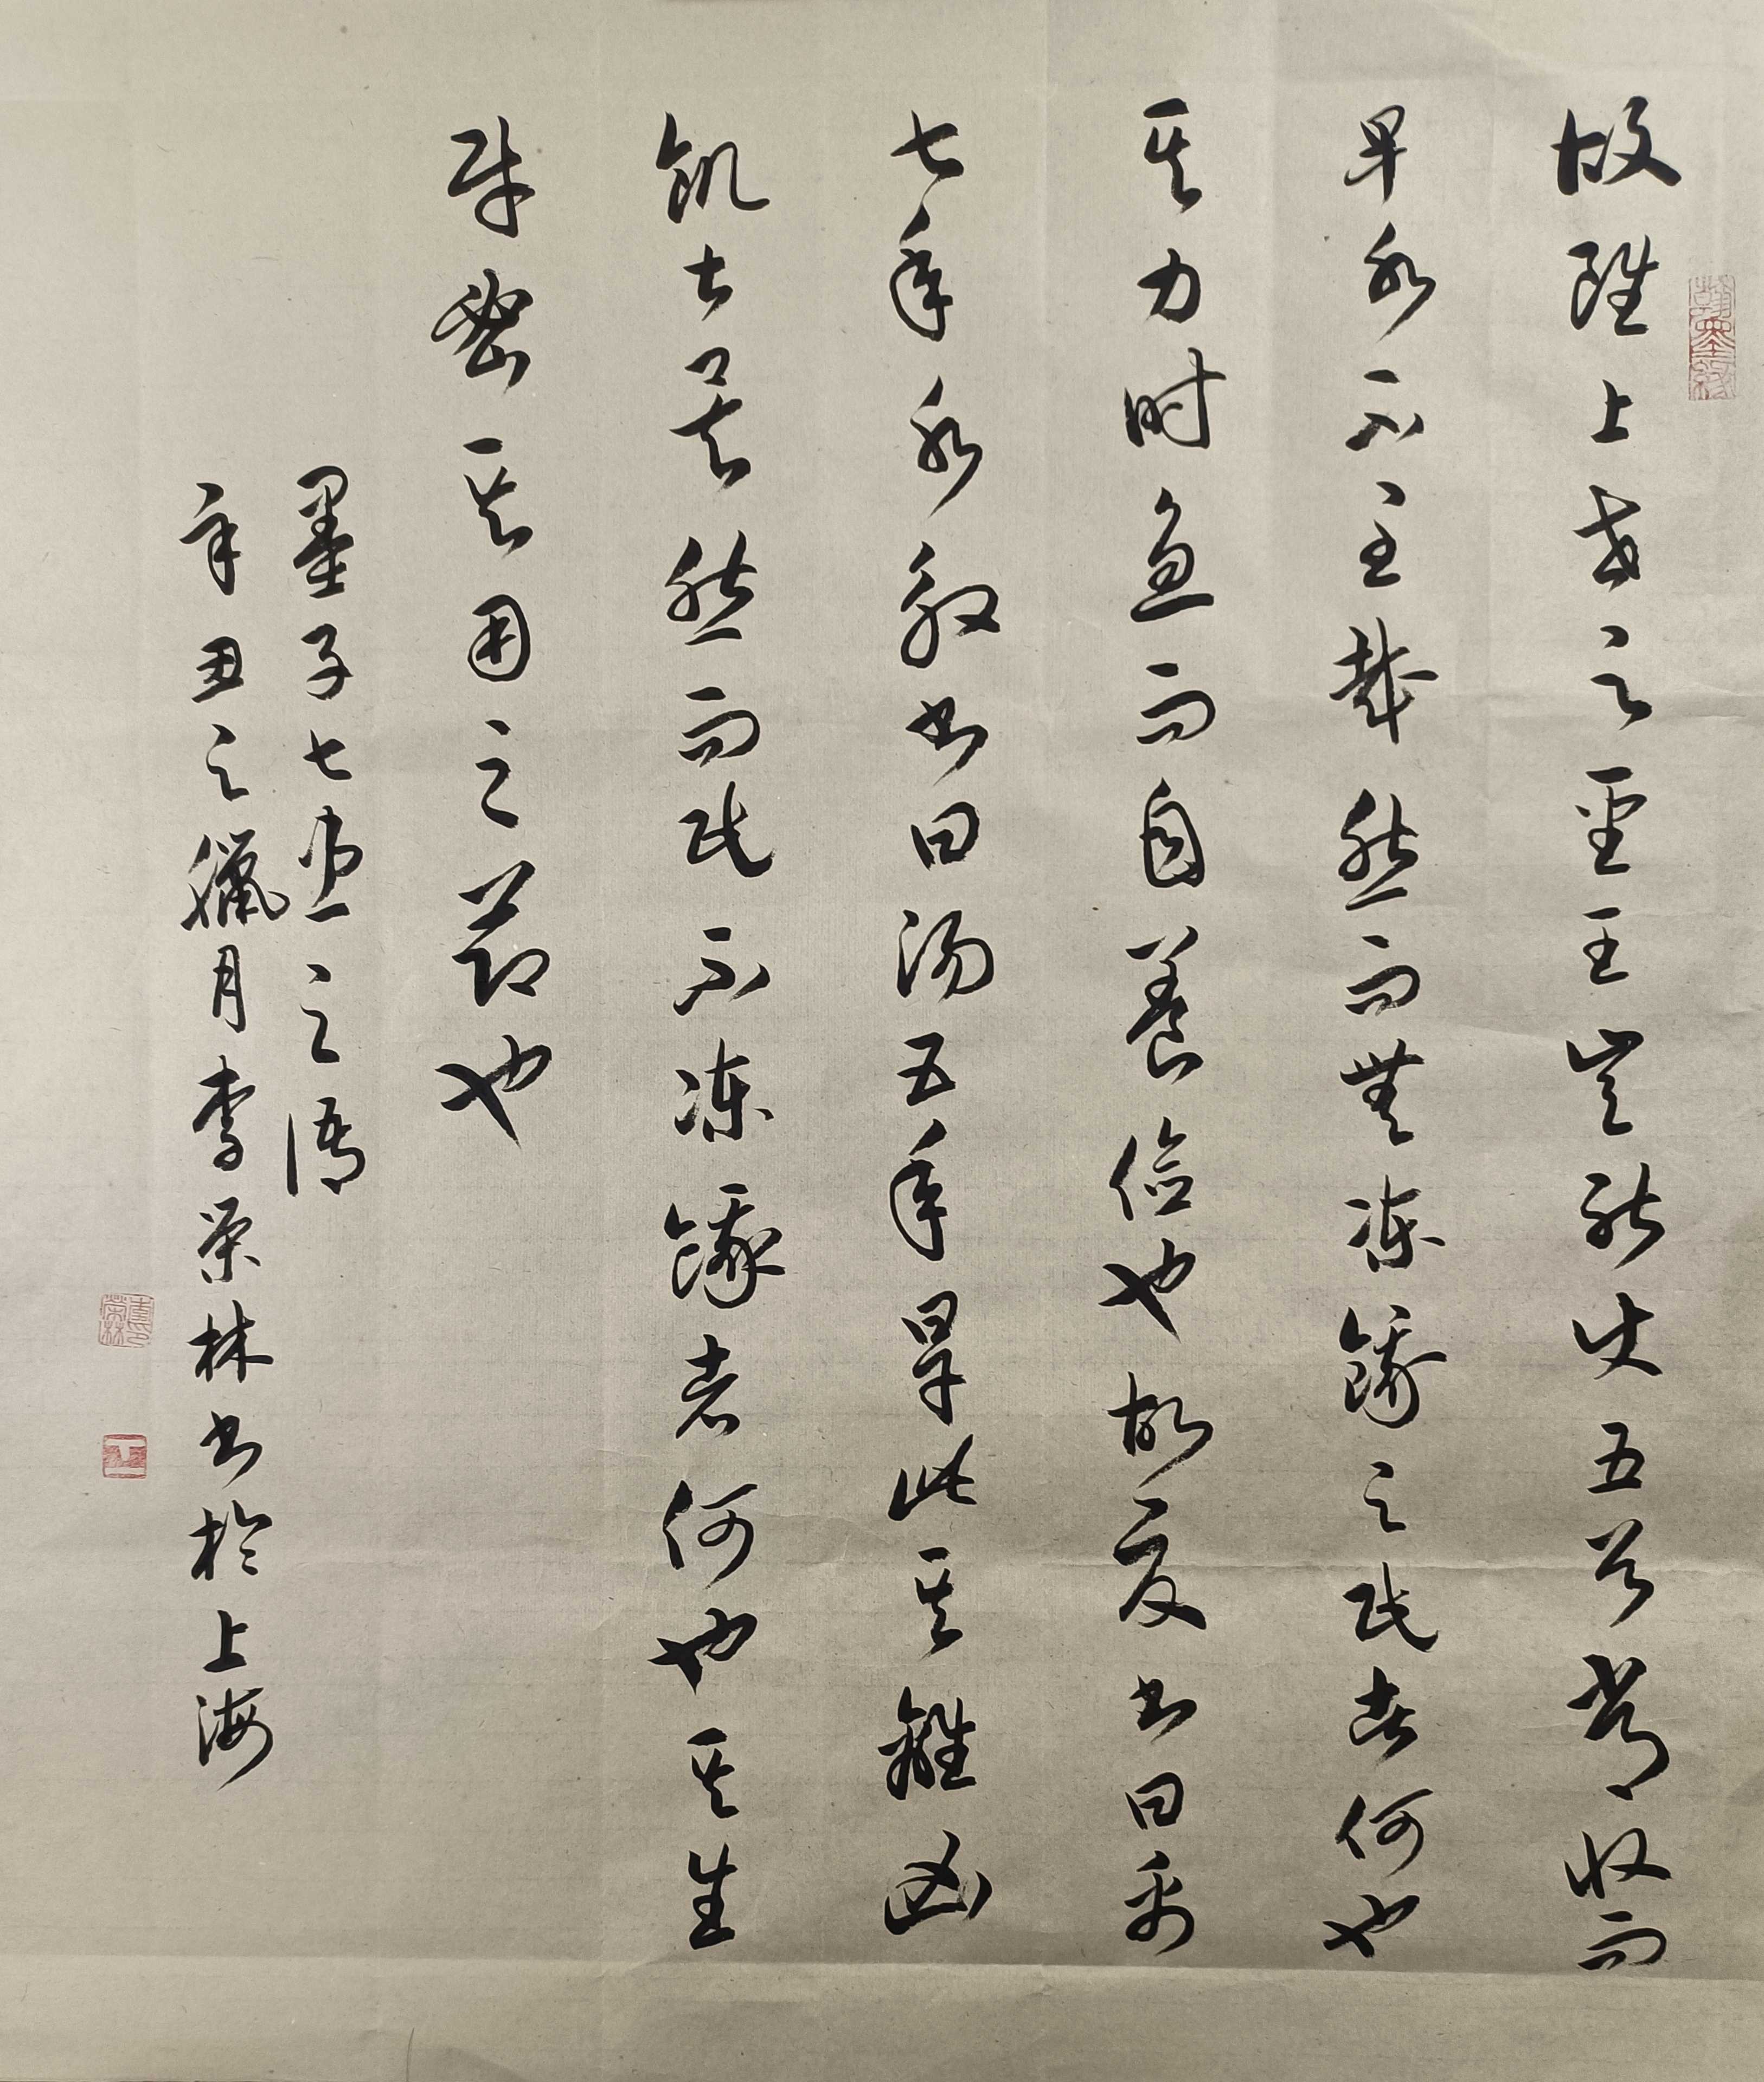 故雖上世之聖王豈能使五谷常收而
旱水不至哉然而無凍餓之民者何也
其力時急而自養儉也故夏書曰禹
七年水殷書曰湯五年旱此其離凶
飢甚矣然而民不凍餓者何也其生
財密其用之節也
墨子七患之語
辛丑之臘月李榮林書於上海
翰墨緣